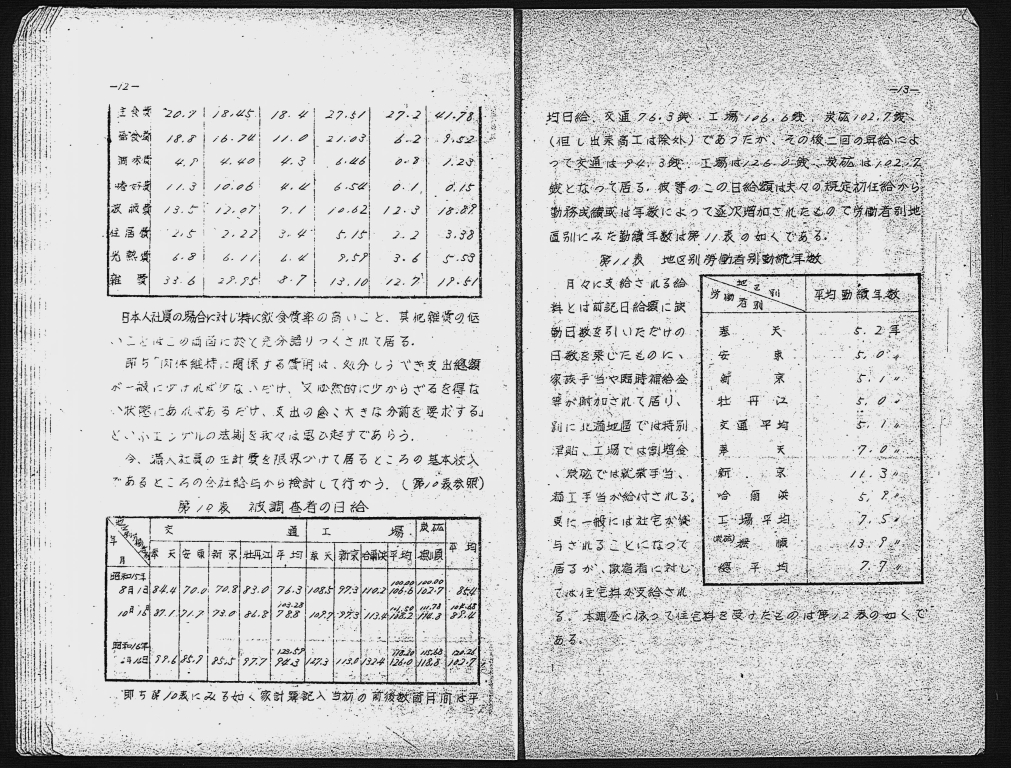 —12—
主食費 20.9 18.45 18.4 27.51 27.2 41.78
副食費 18.8 16.74 11.0 21.03 6.2 9.52
調味費 4.9 4.40 4.3 6.46 0.8 1.23
嗜好費 11.3 10.06 4.4 6.54 0.1 0.15
被服費 13.5 12.07 7.1 10.62 12.3 18.89
住居費 2.5 2.22 3.4 5.15 2.2 3.38
光熱費 6.8 6.11 6.4 9.59 3.6 5.53
雑費 33.6 29.95 8.7 13.10 12.7 19.51
日本人社員の場合に対し特に飲食費率の高いこと、其他雑費の低
いことはこの両面に於て充分語りつくされて居る。
即ち「肉体維持に関係する費用は、処分しうべき支出総額
が一般に少ければ少ないだけ、又必然的に少からざるを得な
い状態にあればあるだけ、支出の愈々大きな分前を要求する」
といふエンゲルの法則を我々は思ひ起すであらう。
今、満人社員の生計費を限界づけて居るところの基本收入
であるところの会社給与から検討して行かう。(第10表参照)
第10表 被調査者の日給
年 月 交通 工場 炭砿 平均
奉天 安東 新京 牡丹江 平均 奉天 新京 哈爾浜 平均 撫順
昭和15年
100.00 100.00
8月1日 84.4 70.0 70.8 83.0 76.3 108.5 97.3 110.2 106.6 102.7 85.4
103.28 101.50 111.78 104.68
10月1日 87.1 71.7 73.0 86.8 78.8 109.7 97.3 113.4 108.2 114.8 89.4
昭和16年
123.59 118.20 115.68 120.26
99.6 85.9 85.5 97.7 94.3 127.3 113.0 132.4 126.0 118.8 102.7
即ち第10表にみる如く家計簿記入当初の前後数箇月間は平
—13—
均日給、交通76.3銭、工場106.6銭、炭砿102.7銭、
(但し出来高工は除外)であったが、その後二回の昇給によ
って交通は94.3銭、工場は126.0銭、炭砿は102.7
銭となって居る。彼等のこの日給額は夫々の規定初任給から
勤務成績或は年数によって逐次増加されたもので労働者別地
区別にみた勤続年数は第11表の如くである。
第11表 地区別労働者別勤続年数
月々に支給される給
料とは前記日給額に欠
勤日数を引いただけの
日数を乗じたものに、
家族手当や臨時補給金
等が附加されて居り、
別に北満地区では特別
津貼、工場では割増金
、炭砿では就業手当、
種工手当が給付される。
更に一般には社宅が貸
与されることになって
居るが、散宿者に対し
ては住宅料が支給され
る。本調査に依って住宅料を受けたものは第12表の如くで
ある。
地区別 労働者別 平均勤続年数
奉天 5.2年
安東 5.0〃
新京 5.1〃
牡丹江 5.0〃
交通平均 5.1〃
奉天 7.0〃
新京 11.3〃
哈爾浜 5.9〃
工場平均 7.5〃
(炭砿)撫順 13.9〃
総平均 7.7〃